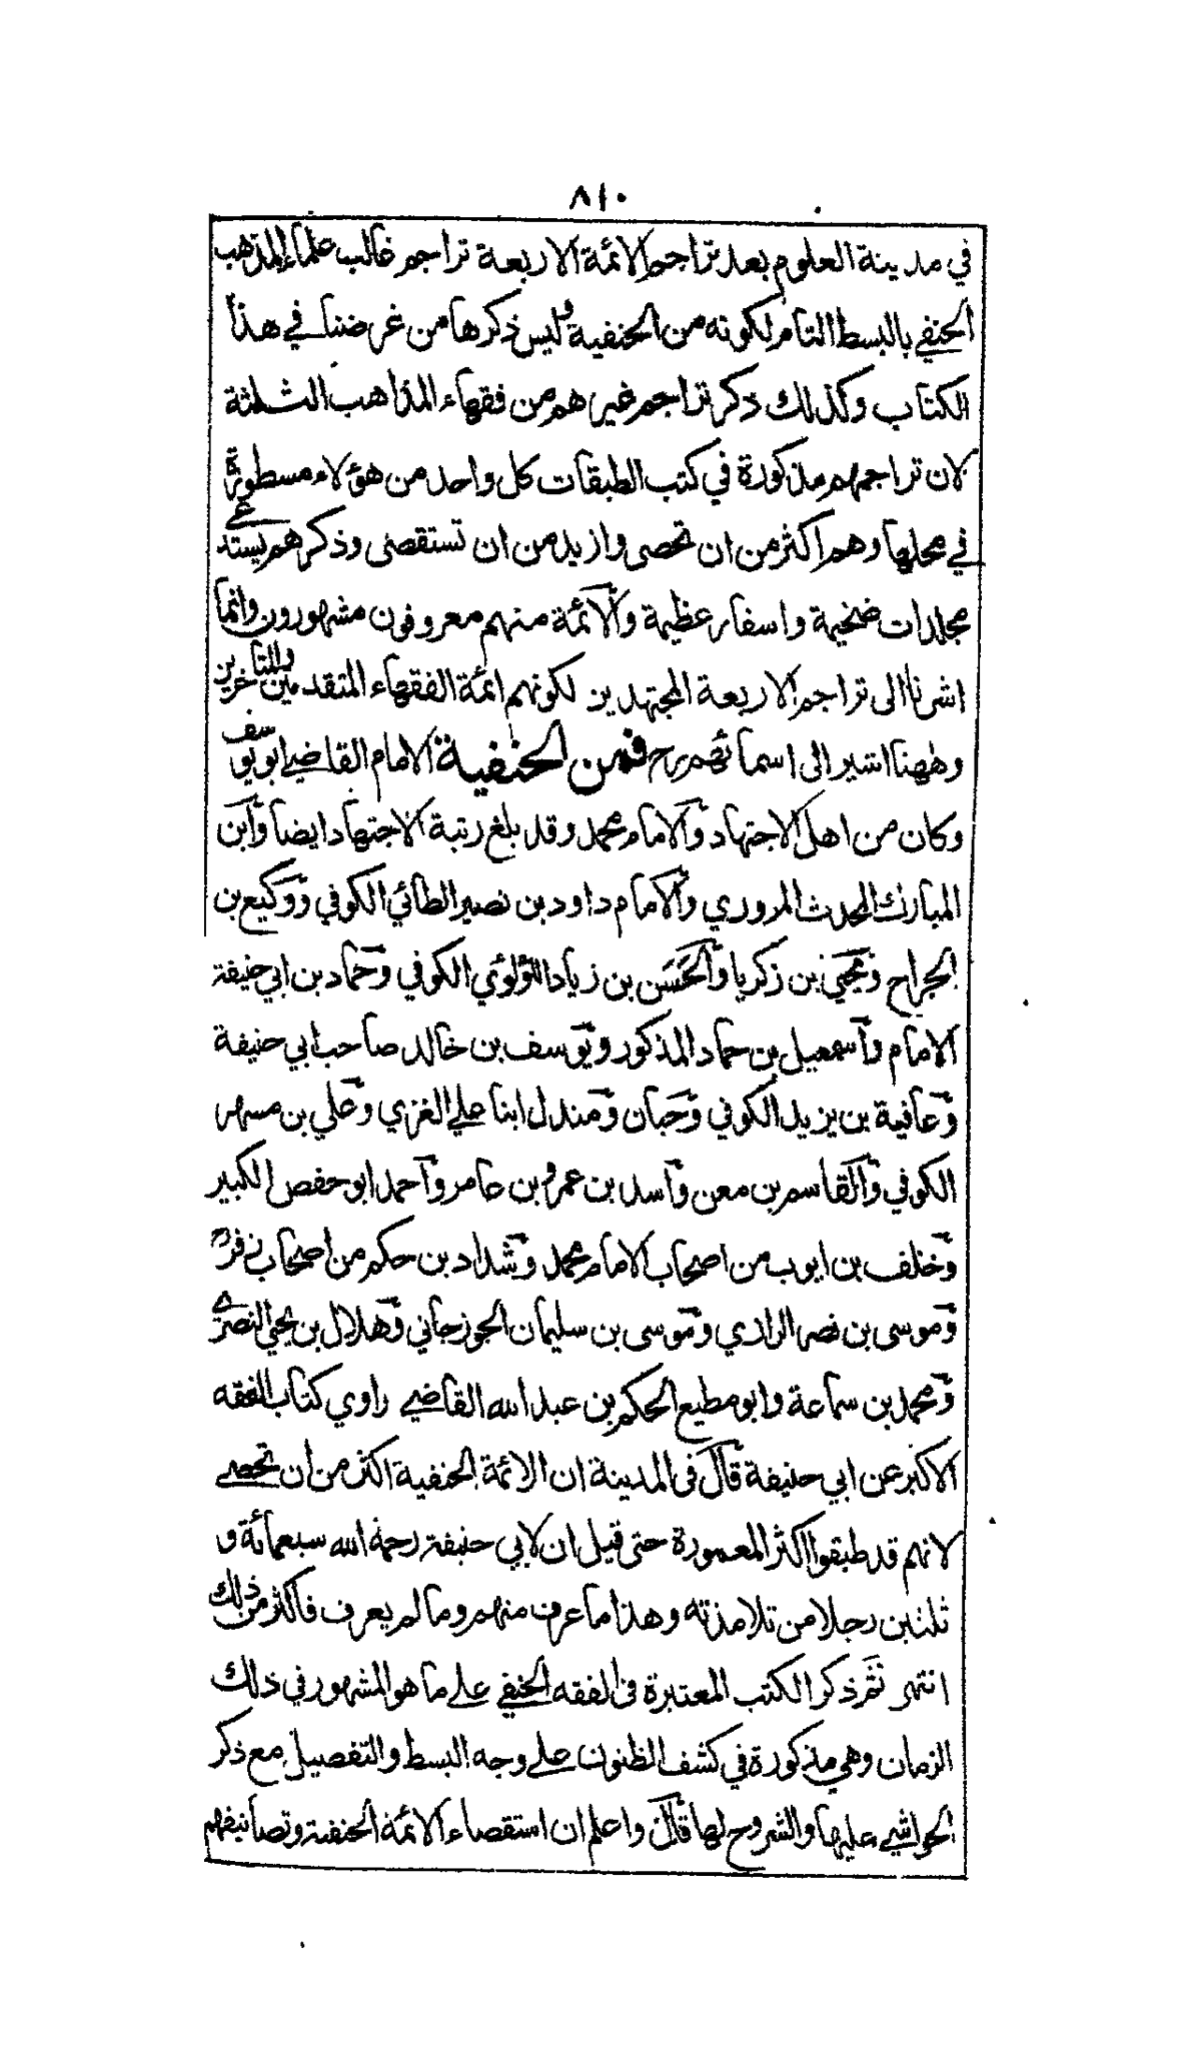 ٨١٠
في مدينة العلوم بعد تراجم الائمة الاربعة تراجم غالب علماء المذهب
الحنفي بالبسط التام لكونه من الحنفية وليس ذكرها من غرضنا في هذا
الكتاب وكذلك ذكر تراجم غيرهم من فقهاء المذاهب الثلثة
لان تراجمهم مذكورة في كتب الطبقات كل واحد من هؤلاء مسطورة
في محلها وهم اكثر من ان تحصى وازيد من ان تستقصى وذكرهم يستدعي
مجلدات ضخيمة واسفار عظيمة والائمة منهم معروفون مشهورون وانما
اشرنا الى تراجم الاربعة المجتهدين لكونهم ائمة الفقهاء المتقدمين والمتاخرين
وههنا اشير الى اسمائهم رح فمن الحنفية الامام القاضي ابو يوسف
وكان من اهل الاجتهاد والامام محمد وقد بلغ رتبة الاجتهاد ايضا وابن
المبارك المحدث المروري والامام داود بن نصير الطائي الكوفي ووكيع بن
الجراح ويحيى بن زكريا والحسن بن زياد اللؤلؤي الكوفي وحماد بن ابي حنيفة
الامام واسمعيل بن حماد المذكور ويوسف بن خالد صاحب ابي حنيفة
وعافية بن يزيد الكوفي وحبان ومندل ابنا علي الغزي وعلي بن مسهر
الكوفي والقاسم بن معن واسد بن عمرو بن عامر واحمد ابو حفص الكبير
وخلف بن ايوب من اصحاب الامام محمد وشداد بن حكم من اصحاب زفر
وموسى بن نصر الرازي وموسى بن سليمان الجوزجاني وهلال بن يحيى النصري
ومحمد بن سماعة وابو مطيع الحكم بن عبد الله القاضي راوي كتاب الفقه
الاكبر عن ابي حنيفة قال فى المدينة ان الائمة الحنفية اكثر من ان تحصى
لانهم قد طبقوا اكثر المعمورة حتى قيل ان لابي حنيفة رحمة الله سبعمائة و
ثلثين رجلا من تلامذته وهذا ما عرف منهم وما لم يعرف فاكثر من ذلك
انتهى ثم ذكر الكتب المعتبرة فى الفقه الحنفي على ما هو المشهور في ذلك
الزمان وهي مذكورة في كشف الظنون على وجه البسط والتفصيل مع ذكر
الحواشي عليها والشروح لها قال واعلم ان استقصاء الائمة الحنفية وتصانيفهم